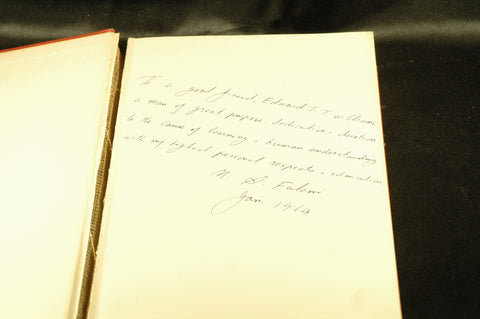 To a good friend, Edward T. Williams
a man of great purpose, dedication, devotion
to the cause of learning & human understanding
with my highest personal respects & admiration
N. S. Fatemi
Jan. 1964